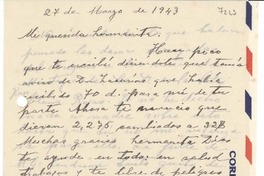 27 de Marzo de 1943
7223
Mi querida hermanita:
Hace poco
que te escribí diciéndote que tenía
aviso de D. Zacarías que había
recibido 70 d. para mí de tu
parte. Ahora te anuncio que
dieron 2,275 cambiados a 32½
Muchas gracias hermanita Dios
te ayude en todo: en salud
trabajos y te libre de peligros
COR